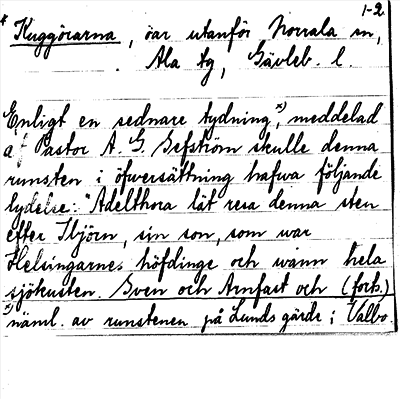 1-2
Kuggörarna, öar utanför Norrala sn,
Ala tg, Gävleb. l.
Enligt en sednare tydning,ˣ⁾ meddelad
af Pastor A. G. Sefström skulle denna
runsten i öfwersättning hafwa följande
lydelse: "Adelthora lät resa denna sten
efter Ibjörn, sin son, som war
Helsingarnes höfdinge och wann hela
sjökusten. Sven och Arnfast och (forts.)
ˣ⁾ näml. av runstenen på Lunds gärde i Valbo.